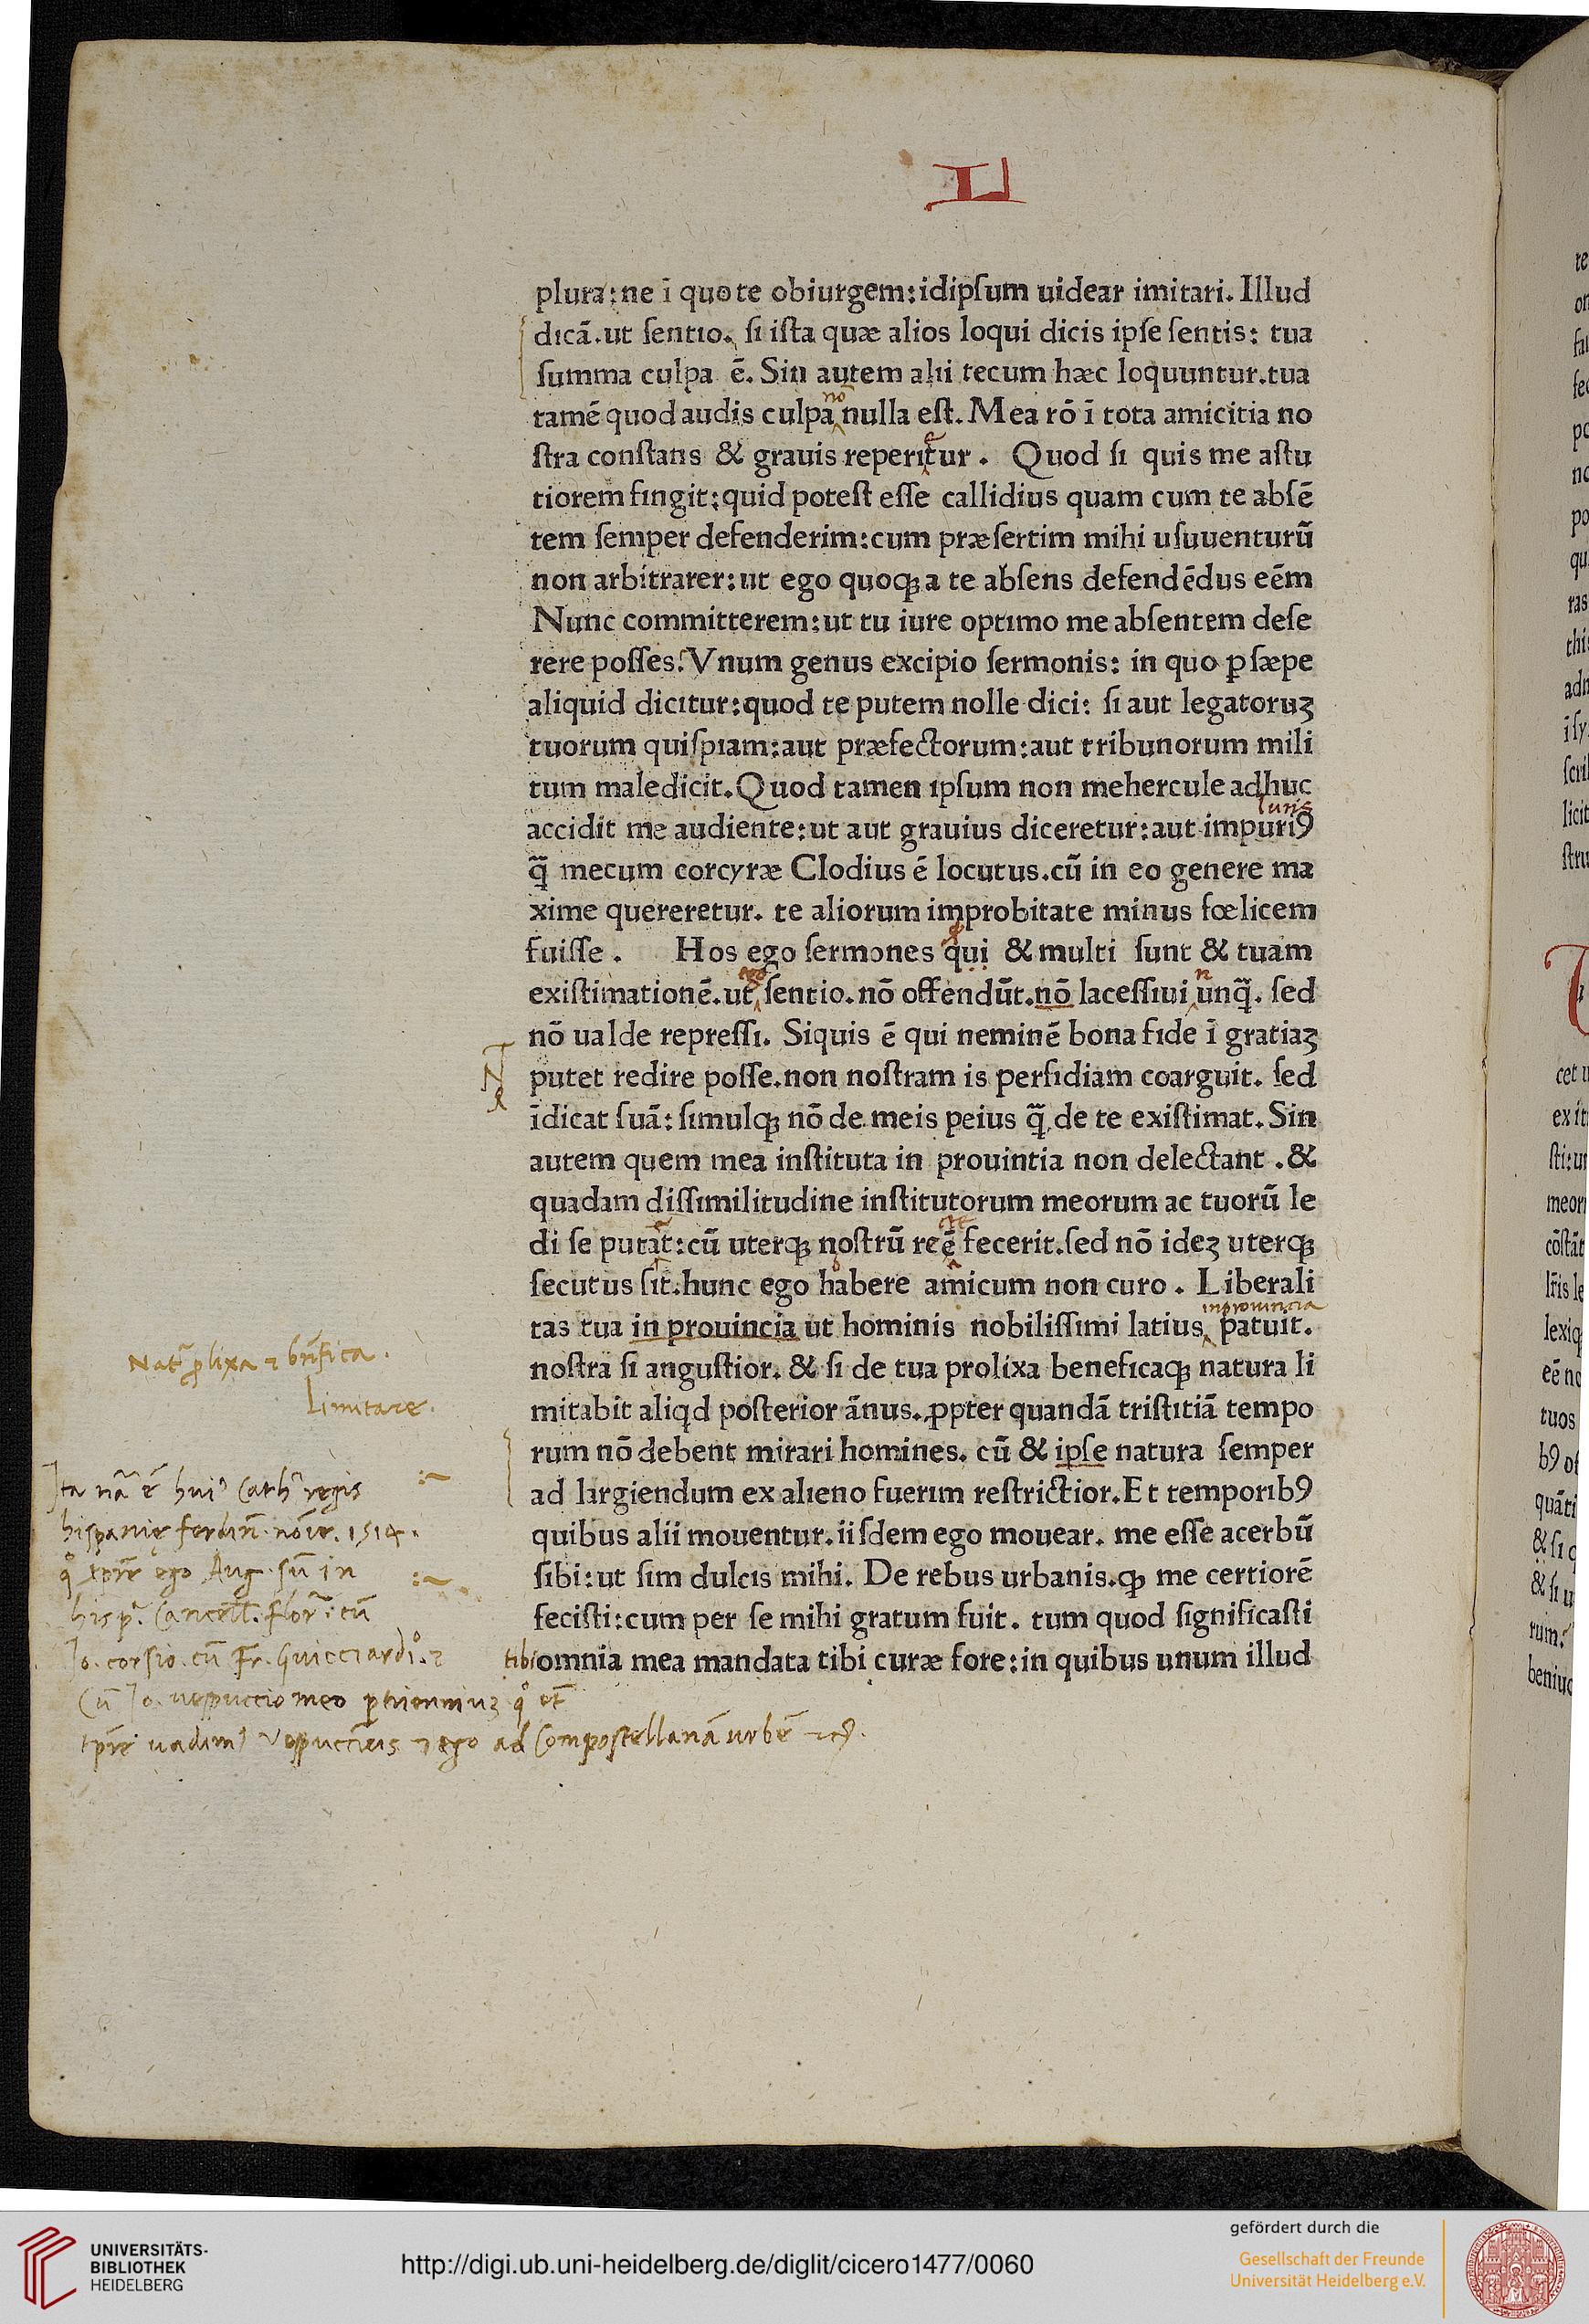 L
plura: ne ī quo te obiurgem: idipſum uidear imitari. Illud
dicā. ut ſentio. ſi iſta quæ alios loqui dicis ipſe ſentis: tua
ſumma culpa ē. Sin autem alii tecum hæc loquuntur. tua
nō
tamē quod audis culpa nulla eſt. Mea rō ī tota amicitia no
ſtra conſtans & grauis reperitur. Quod ſi quis me aſtu
tiorem fingit: quid poteſt eſſe callidius quam cum te abſē
tem ſemper defenderim: cum præſertim mihi uſuuenturū
non arbitrarer: ut ego quoqꝫ a te abſens defendēdus eēm
Nunc committerem: ut tu iure optimo me abſentem deſe
rere poſſes. Vnum genus excipio ſermonis: in quo ꝑſæpe
aliquid dicitur: quod te putem nolle dici: ſi aut legatoruꝫ
tuorum quiſpiam: aut præfectorum: aut tribunorum mili
tum maledicit. Quod tamen ipſum non mehercule adhuc
luris
accidit me audiente: ut aut grauius diceretur: aut impuriꝯ
q̃ mecum corcyræ Clodius ē locutus. cū in eo genere ma
xime quereretur. te aliorum improbitate minus fœlicem
fuiſſe. Hos ego ſermones qui & multi ſunt & tuam
ego n
exiſtimationē. ut ſentio. nō offendūt. nō laceſſiui unq̃. ſed
nō ualde repreſſi. Siquis ē qui neminē bona fide ī gratiaꝫ
putet redire poſſe. non noſtram is perfidiam coarguit. ſed
īdicat ſuā: ſimulqꝫ nō de meis peius q̃ de te exiſtimat. Sin
autem quem mea inſtituta in prouintia non delectant. &
quadam diſſimilitudine inſtitutorum meorum ac tuorū le
di ſe putat: cū uterqꝫ noſtrū rcē fecerit. ſed nō ideꝫ uterqꝫ
ſecutus ſit. hunc ego habere amicum non curo. Liberali
inprouincia
tas tua in prouincia ut hominis nobiliſſimi latius patuit.
noſtra ſi anguſtior. & ſi de tua prolixa beneficaqꝫ natura li
mitabit aliqd poſterior ānus. ꝓpter quandā triſtitiā tempo
rum nō debent mirari homines. cū & ipſe natura ſemper
ad largiendum ex alieno fuerim reſtrictior. Et temporibꝯ
quibus alii mouentur. iiſdem ego mouear. me eſſe acerbū
ſibi: ut ſim dulcis mihi. De rebus urbanis. qꝫ me certiorē
feciſti: cum per ſe mihi gratum fuit. tum quod ſignificaſti
tibi omnia mea mandata tibi curæ fore: in quibus unum illud
Natᵃ ꝓlixa ⁊ bn̄fica.
Limitare.
Ita nā ē huiꝰ Cathᶜⁱ regis
hispanię ferdin̄. nōie. 1514.
qᵒ tp̄re ego Aug. sū in
hispᵃ. Cancell̄. florᵃ: cū
Jo. corsio. cū Fr. Guicciardᵒ. ⁊
Cū Jo. uespuccio meo ꝑ trienniuꝫ qᵒ et̄
tp̄re uadimꝰ Vespuccius ⁊ ego ad Compostellanā urbē
UNIVERSITÄTS-
BIBLIOTHEK
HEIDELBERG
http://digi.ub.uni-heidelberg.de/diglit/cicero1477/0060
gefördert durch die
Gesellschaft der Freunde
Universität Heidelberg e.V.